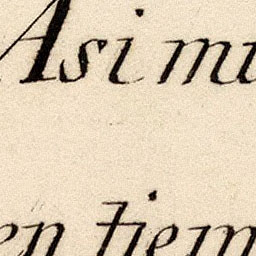 Asi mu
en tiem